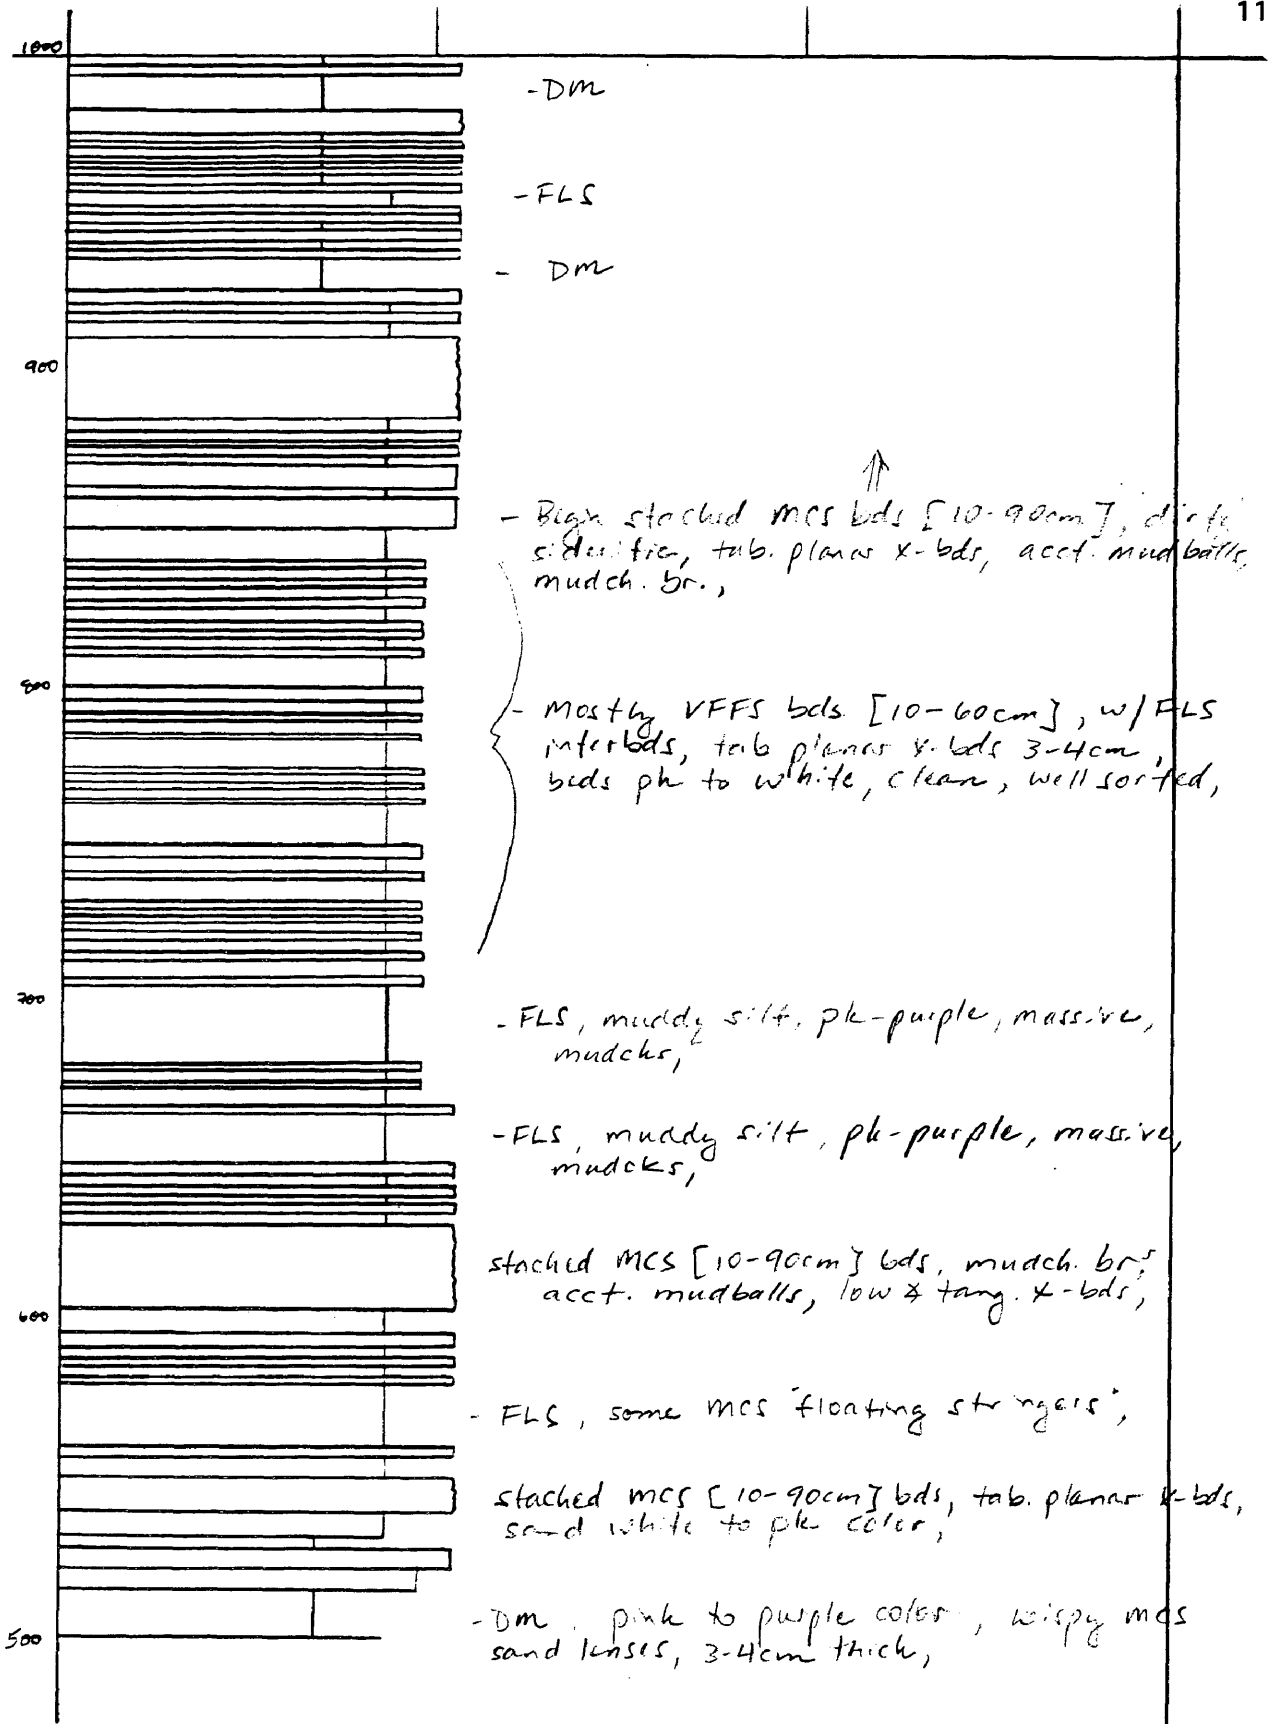 11
1000
- DM
- FLS
- DM
900
- Begin stacked MCS bds [10-90cm], dirty,
sideritic, tab. planar x-bds, acct. mudballs,
mudch. br.,
800
- Mostly VFFS bds. [10-60cm], w/ FLS
interbds, tab planar x-bds 3-4cm,
beds pk to white, clean, well sorted,
700
- FLS, muddy silt, pk-purple, massive,
mudcks,
- FLS, muddy silt, pk-purple, massive,
mudcks,
stacked MCS [10-90cm] bds, mudch. br.,
acct. mudballs, low ∡ tang. x-bds,
600
- FLS, some MCS "floating stringers",
stacked MCS [10-90cm] bds, tab. planar x-bds,
sand white to pk color,
- DM, pink to purple color, wispy mcs
500
sand lenses, 3-4cm thick,